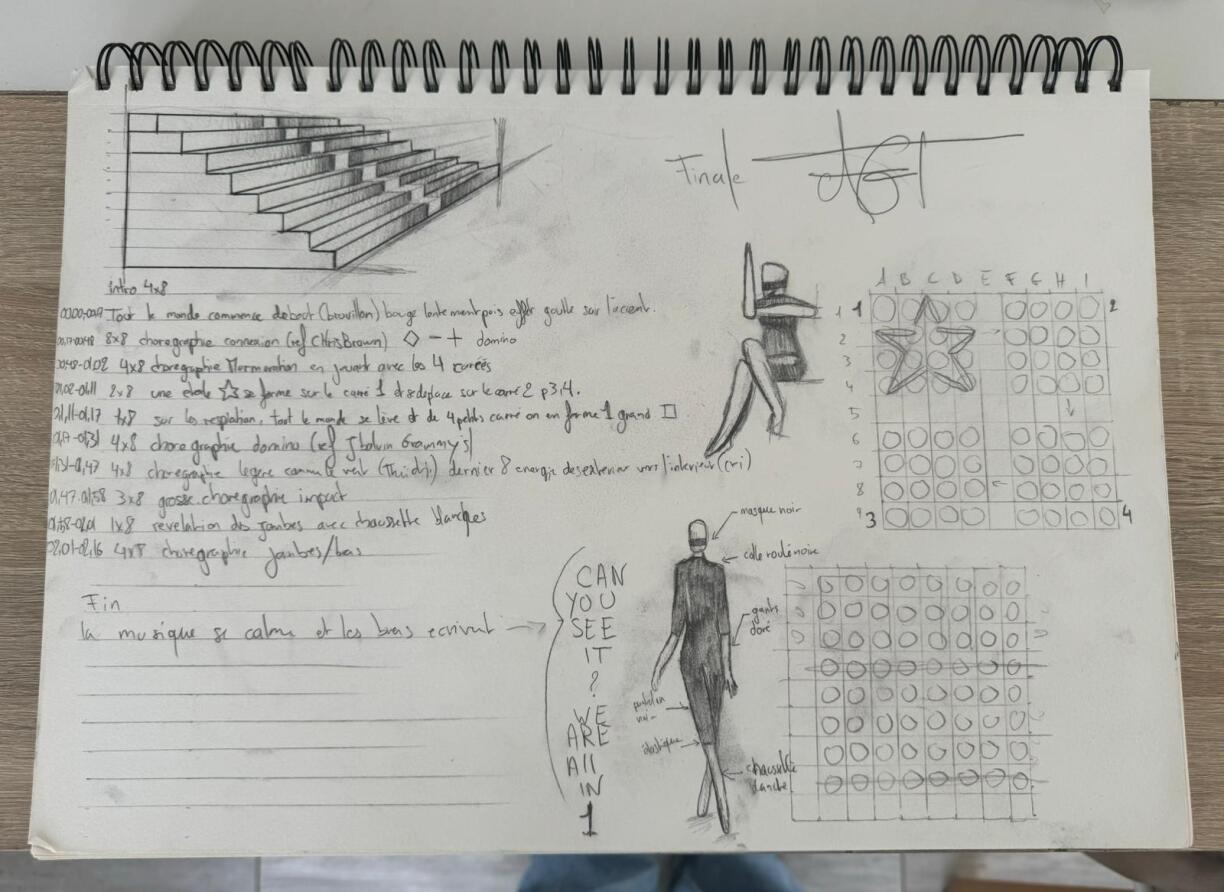 Finale AGT
intro 4x8
00,00-00,17 Tout le monde commence debout (brouillon) bouge lentement puis effet goutte sur l'accent.
00,17-00,48 8x8 choregraphie connexion (ref Chris Brown) ◇ - + domino
00,48-01,02 4x8 choregraphie Murmuration en jouant avec les 4 carrés
01,02-01,11 2x8 une etoile ☆ se forme sur le carré 1 et se deplace sur le carré 2 p3,4.
01,11-01,17 1x8 sur la respiration, tout le monde se lève et de 4 petits carré on en forme 1 grand □
01,17-01,31 4x8 choregraphie domino (ref J balvin Grammy's)
01,31-01,47 4x8 choregraphie legere comme le vent dernier 8 energie des exterieur vers l'interieur (cri)
01,47-01,58 3x8 grosse choregraphie impact
01,58-02,01 1x8 revelation des jambes avec chaussette blanches
02,01-02,16 4x8 choregraphie jambes/bras
Fin
la musique se calme et les bras ecrivent
CAN
YOU
SEE
IT
?
WE
ARE
All
IN
1
masque noir
colle roulé noire
gants
doré
pantalon
noir
élastique
chaussette
blanche
A B C D E F G H I
1 1 2
2
3
4
5
6
7
8
9 3 4